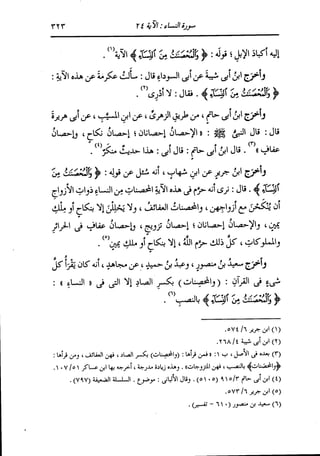 سورة النساء : الآية ٢٤ ٣٢٣
إليه أكباد الإبل ؛ قوله : ﴿ وَٱلْمُحْصَنَٰتُ مِنَ ٱلنِّسَآءِ ﴾ الآية(١).
وأخرَج ابنُ أبى شيبةَ عن أبى السوداءِ قال : سألتُ عكرمةَ عن هذه الآيةِ :
﴿ وَٱلْمُحْصَنَٰتُ مِنَ ٱلنِّسَآءِ ﴾ . فقال : لا أدرى(٢).
وأخرَج ابنُ أبى حاتمٍ ، من طريقِ الزهرىِّ ، عن ابنِ المسيبِ ، عن أبى هريرةَ
قال : قال النبىُّ ﷺ : « الإحصانُ إحصانانِ ؛ إحصانُ نكاحٍ ، وإحصانُ
عفافٍ »(٣). قال ابنُ أبى حاتمٍ : قال أبى : هذا حديثٌ منكرٌ(٤).
وأخرَج ابنُ جريرٍ عن ابنِ شهابٍ ، أنه سُئل عن قولِه : ﴿ وَٱلْمُحْصَنَٰتُ مِنَ
ٱلنِّسَآءِ ﴾ . قال : نرى أنه حرَّم فى هذه الآيةِ المحصناتِ من النساءِ ذواتِ الأزواجِ
أن يُنكَحن مع أزواجِهن ، والمحصناتُ العفائفُ ، ولا يَحلِلْن إلا بنكاحٍ أو ملكِ
يمينٍ ، والإحصانُ إحصانانِ ؛ إحصانُ تزويجٍ ، وإحصانُ عفافٍ فى الحرائرِ
والمملوكاتِ ، كلُّ ذلك حرَّم اللهُ ، إلا بنكاحٍ أو ملكِ يمينٍ(٥).
وأخرَج سعيدُ بنُ منصورٍ ، وعبدُ بنُ حميدٍ ، عن مجاهدٍ ، أنه كان يَقرأُ كلَّ
شىءٍ فى القرآنِ : ( والمحصِنات ) بكسرِ الصادِ إلا التى فى « النساءِ » :
﴿ وَٱلْمُحْصَنَٰتُ مِنَ ٱلنِّسَآءِ ﴾ بالنصبِ(٦).
(١) ابن جرير ٦/ ٥٧٤.
(٢) ابن أبى شيبة ٤/ ٢٦٨.
(٣) بعده فى الأصل ، ب ١: « فمن قرأها : (والمحصِنات) بكسر الصاد ، فهن العفائف ، ومن قرأها :
﴿والمحصَنات﴾ بالنصب ، فهن المزوجات» . وهذه زيادة مدرجة ، أخرجه بها ابن عساكر ٥١/ ١٠٧.
(٤) ابن أبى حاتم ٣/ ٩١٥ (٥١٠٥) . وقال الألبانى : موضوع . السلسلة الضعيفة (٧٩٧) .
(٥) ابن جرير ٦/ ٥٧٣.
(٦) سعيد بن منصور (٦١٠ - تفسير) .